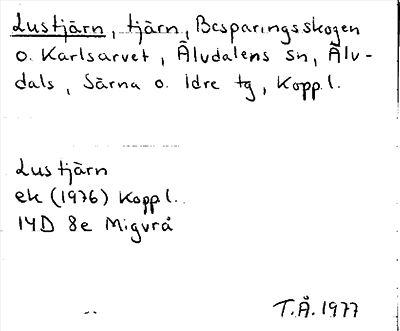 Lustjärn, tjärn, Besparingsskogen
o. Karlsarvet, Älvdalens sn, Älv-
dals, Särna o. Idre tg, Koppl.
Lustjärn
ek (1976) Koppl.
14D 8e Migvrå
T.Å. 1977